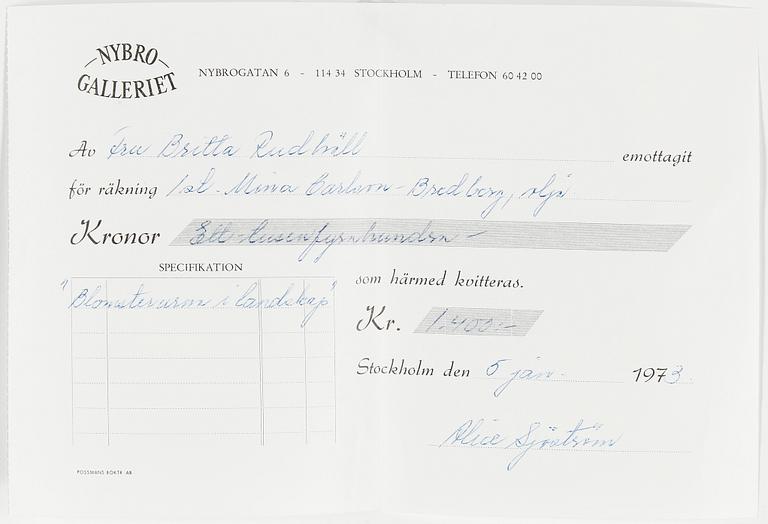 NYBRO
GALLERIET
NYBROGATAN 6 - 114 34 STOCKHOLM - TELEFON 60 42 00
Av Fru Britta Rudhäll emottagit
för räkning 1 st. Mina Carlson-Bredberg, olja
Kronor Ett-tusenfyrahundra -
SPECIFIKATION
som härmed kvitteras.
"Blomsterurm i landskap"
Kr. 1.400:-
Stockholm den 5 jan. 1973.
Alice Sjöström
POSSMANS BOKTR AB